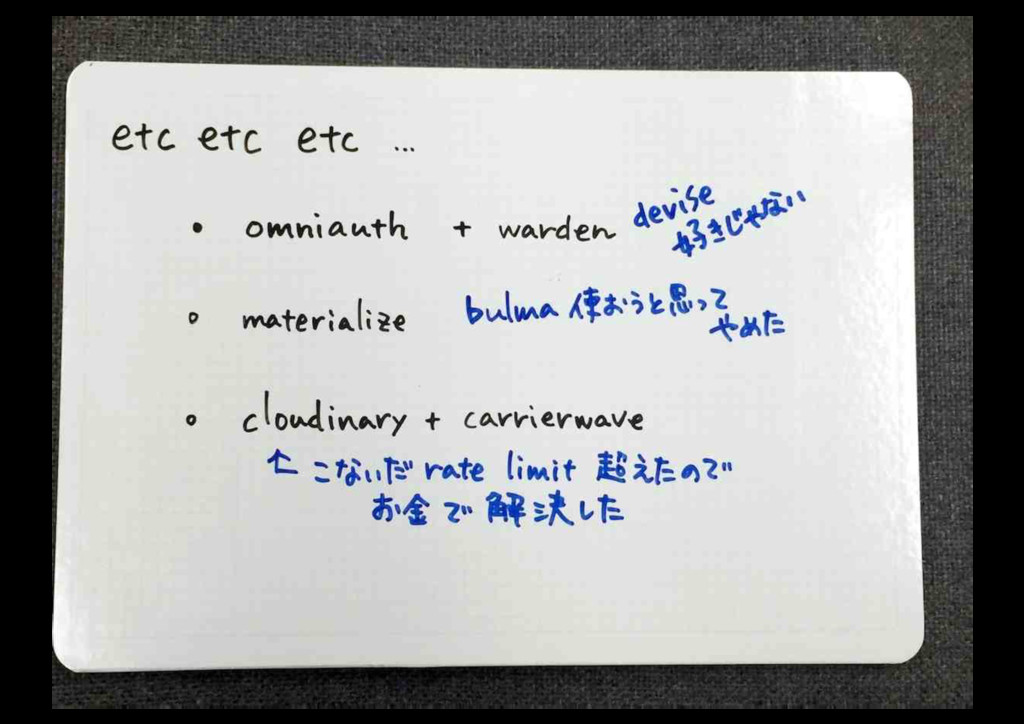 etc etc etc ...
• omniauth + warden devise
好きじゃない
• materialize bulma 使おうと思って
やめた
• cloudinary + carrierwave
↑ こないだ rate limit 超えたので
お金で解決した